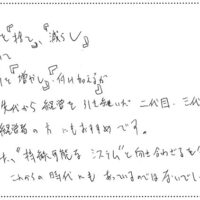 と『捨て』、『減らし』
て
と『増やし』・付け加えるが
先代から経営を引き継いだ二代目、三代
経営者の方にもおすすめです。
"持続可能なシステム"と向き合わせるも
これからの時代にも あっているのではないでし